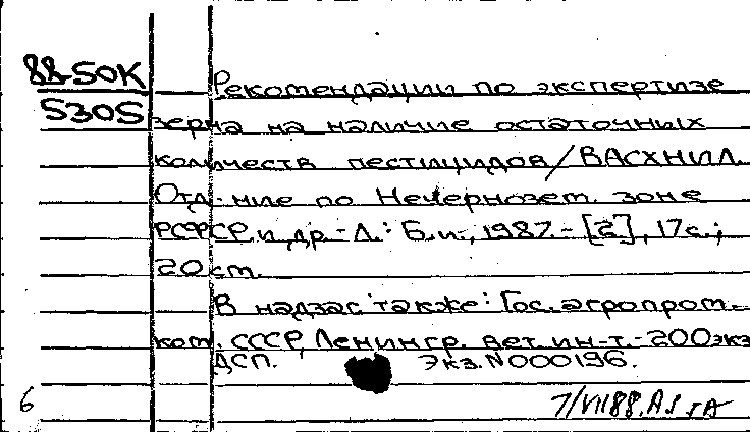 88-50К
5305
Рекомендации по экспертизе
зерна на наличие остаточных
количеств пестицидов/ВАСХНИЛ.
Отд-ние по Нечернозем. зоне
РСФСР и др.-Л.: Б.и., 1987.-[2], 17с.;
20 см.
В надзаг. также: Гос. агропром.
ком. СССР, Ленингр. вет. ин-т.-200экз
ДСП. Экз.N000196.
6
7/VII88.